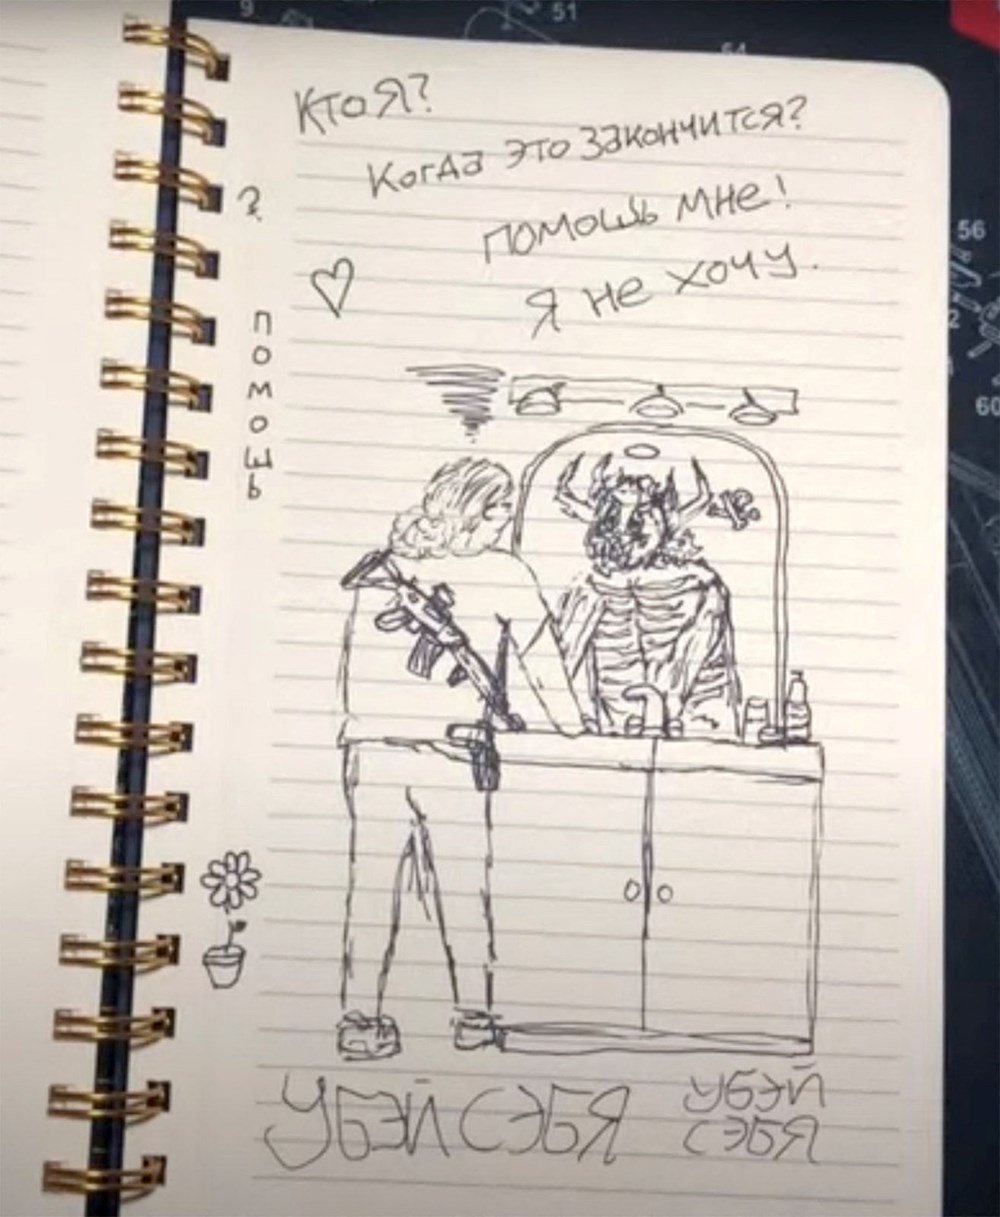 9
51
54
КТО Я?
Когда это закончится?
помошь мне!
Я не хочу.
?
помошь
56
2
60
УБЭЙ СЭБЯ
УБЭЙ
СЭБЯ